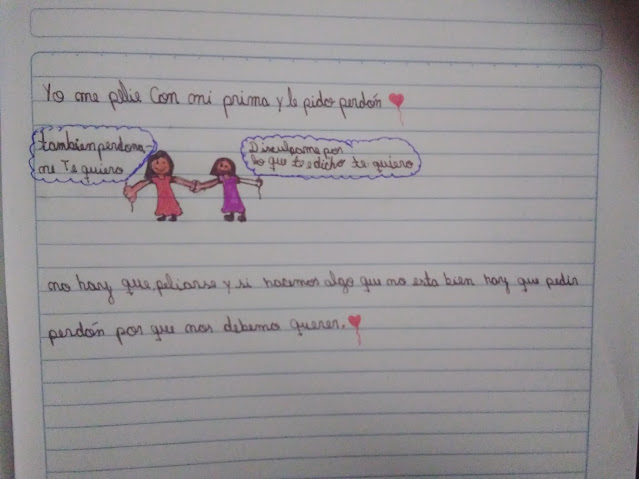 Yo me pelie con mi prima y le pido perdón
tambien perdona-
me Te quiero
Disculpame por
lo que te e dicho te quiero
no hay que peliarse y si hacemos algo que no esta bien hay que pedir
perdón por que nos debemo querer.